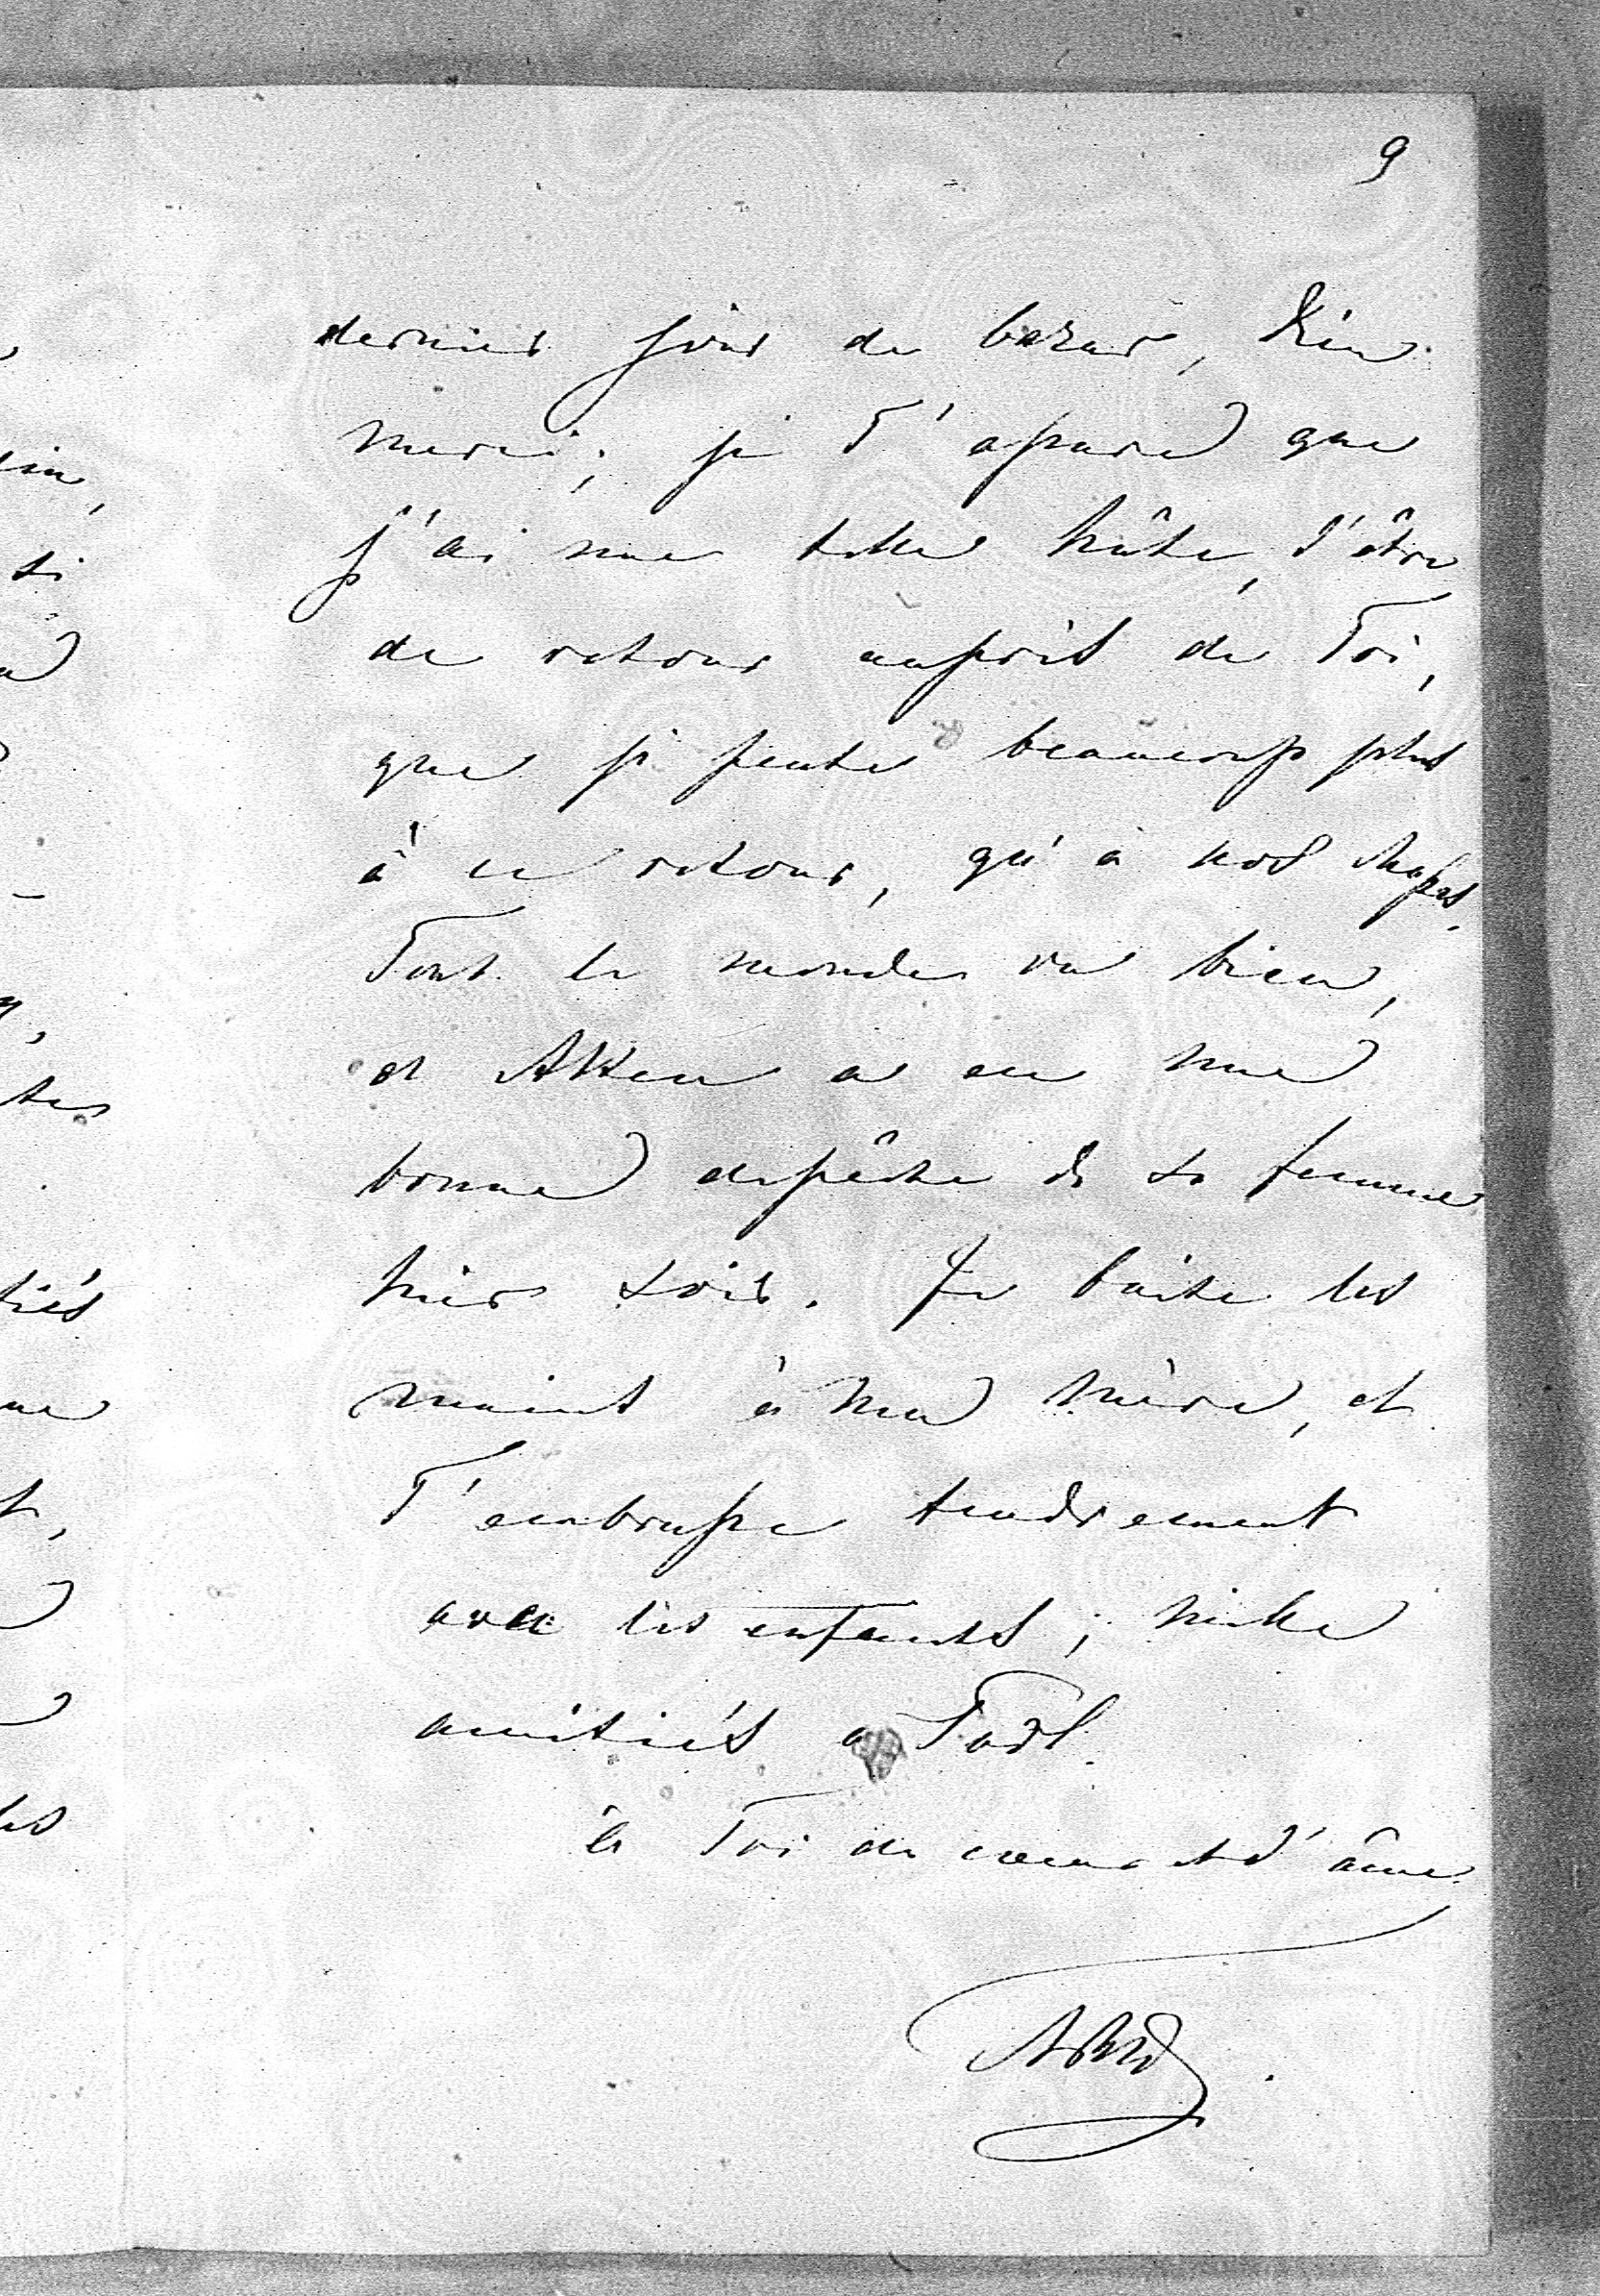 9
dernier jour de bazar, Dieu
merci; je T'assure que
j'ai une telle hâte, d'être
de retour auprès de Toi,
que je pense beaucoup plus
à ce retour, qu'à nos chasses.
Tout le monde va bien,
et Alken a eu une
bonne depêche de sa femme
hier soir. Je baise les
mains à Ma mère, et
T'embrasse tendrement
avec les enfants; mille
amitiés a
à Toi de coeur et d'âme